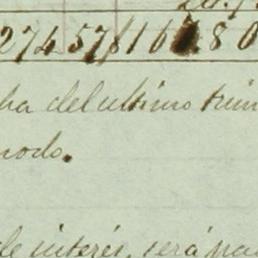 274578 16 80
ha del ultimo trim
modo.
de interés, será pa